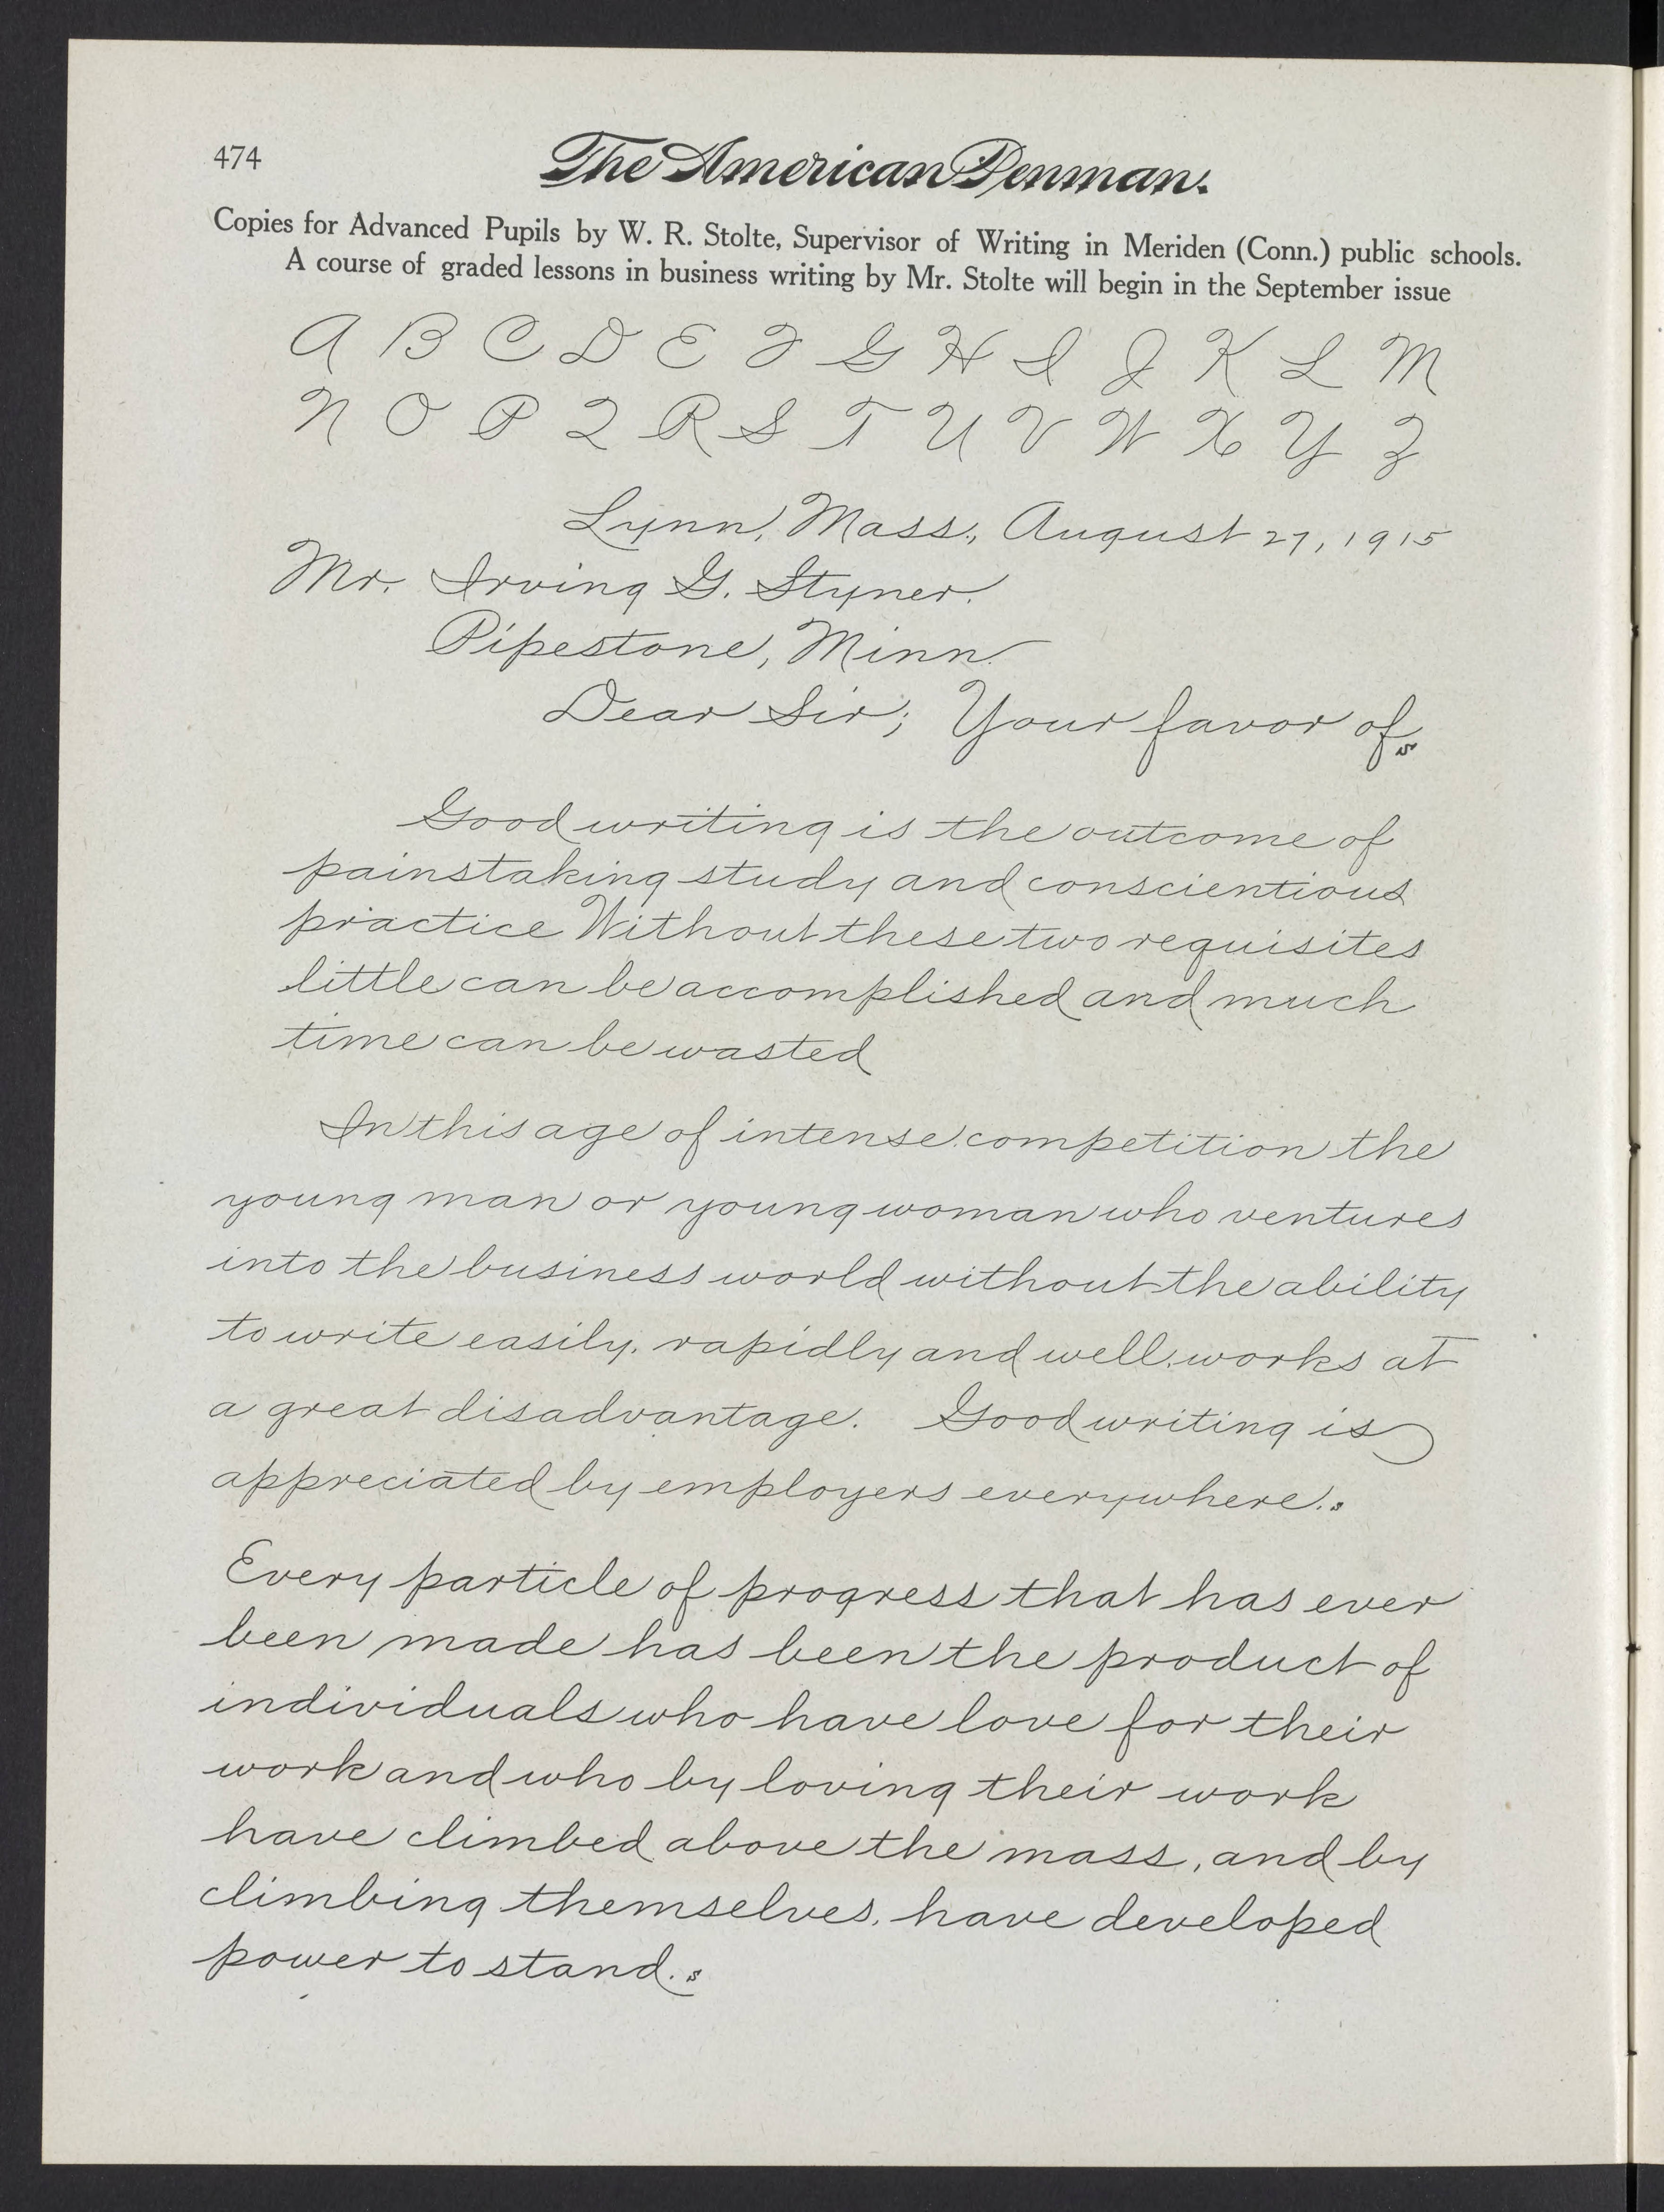 474
The American Penman.
Copies for Advanced Pupils by W. R. Stolte, Supervisor of Writing in Meriden (Conn.) public schools.
A course of graded lessons in business writing by Mr. Stolte will begin in the September issue
A B C D E F G H I J K L M
N O P Q R S T U V W X Y Z
Lynn, Mass., August 27, 1915
Mr. Irving G. Styner.
Pipestone, Minn.
Dear Sir; Your favor of
Good writing is the outcome of
painstaking study and conscientious
practice Without these two requisites
little can be accomplished and much
time can be wasted
In this age of intense competition the
young man or young woman who ventures
into the business world without the ability
to write easily, rapidly and well, works at
a great disadvantage. Good writing is
appreciated by employers everywhere.
Every particle of progress that has ever
been made has been the product of
individuals who have love for their
work and who by loving their work
have climbed above the mass, and by
climbing themselves, have developed
power to stand.